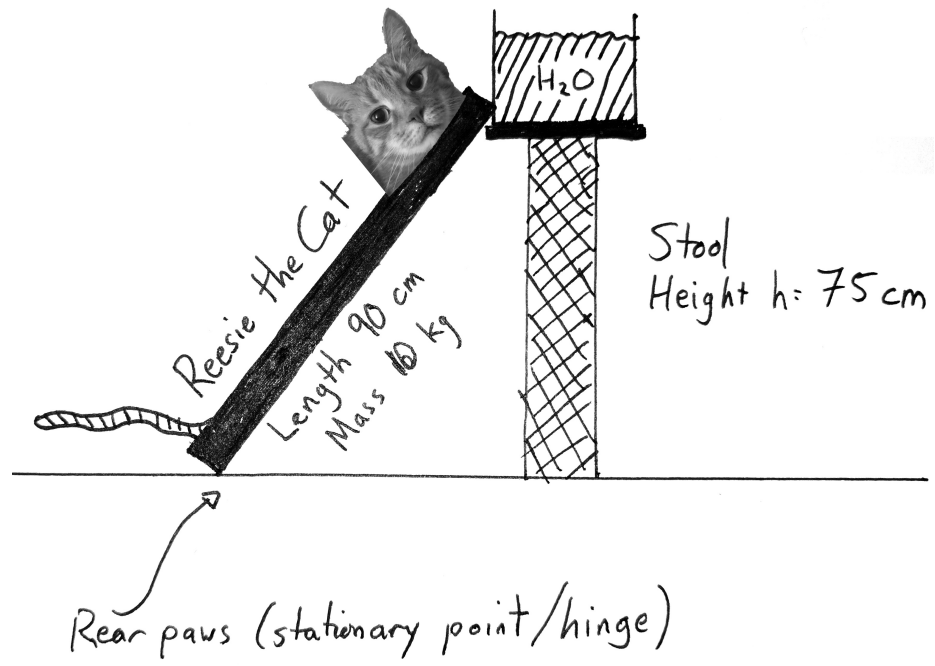 H₂O
Reesie the Cat
Length 90 cm
Mass 10 kg
Stool
Height h= 75 cm
Rear paws (stationary point/hinge)